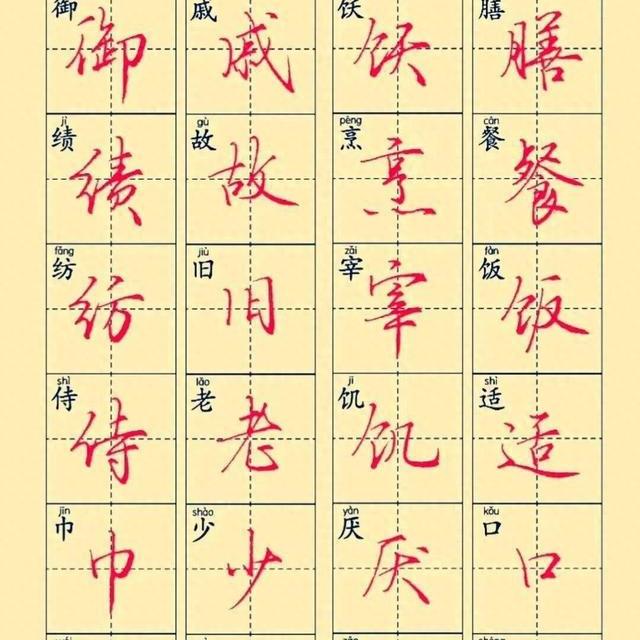 膳 膳
cān
餐 餐
fàn
饭 饭
shì
适 适
kǒu
口 口
饫 饫
pēng
烹 烹
zǎi
宰 宰
jī
饥 饥
yàn
厌 厌
戚 戚
gù
故 故
jiù
旧 旧
lǎo
老 老
shào
少 少
御 御
jì
绩 绩
fǎng
纺 纺
shì
侍 侍
jīn
巾 巾